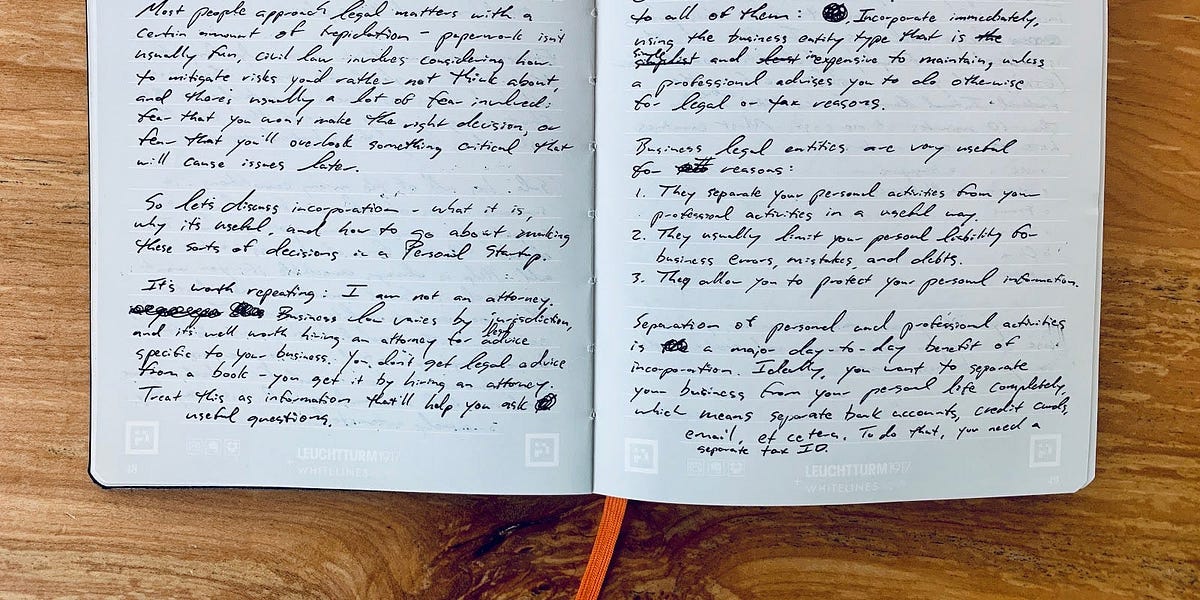 Most people approach legal matters with a
certain amount of trepidation - paperwork isn't
usually fun, civil law involves considering how
to mitigate risks you'd rather not think about,
and there's usually a lot of fear involved:
fear that you won't make the right decision, or
fear that you'll overlook something critical that
will cause issues later.
So let's discuss incorporation - what it is,
why its useful, and how to go about making
these sorts of decisions in a Personal Startup.
It's worth repeating: I am not an attorney.
Business law varies by jurisdiction,
and its well worth hiring an attorney for best advice
specific to your business. You don't get legal advice
from a book - you get it by hiring an attorney.
Treat this as information that'll help you ask
useful questions.
48
LEUCHTTURM1917
+ WHITELINES
to all of them: Incorporate immediately,
using the business entity type that is the
simplest and least inexpensive to maintain, unless
a professional advises you to do otherwise
for legal or tax reasons.
Business legal entities are very useful
for reasons:
1. They separate your personal activities from your
professional activities in a useful way.
2. They usually limit your personal liability for
business errors, mistakes, and debts.
3. They allow you to protect your personal information.
Separation of personal and professional activities
is a major day-to-day benefit of
incorporation. Ideally, you want to separate
your business from your personal life completely,
which means separate bank accounts, credit cards,
email, et cetera. To do that, you need a
separate tax ID.
LEUCHTTURM1917
+ WHITELINES
49